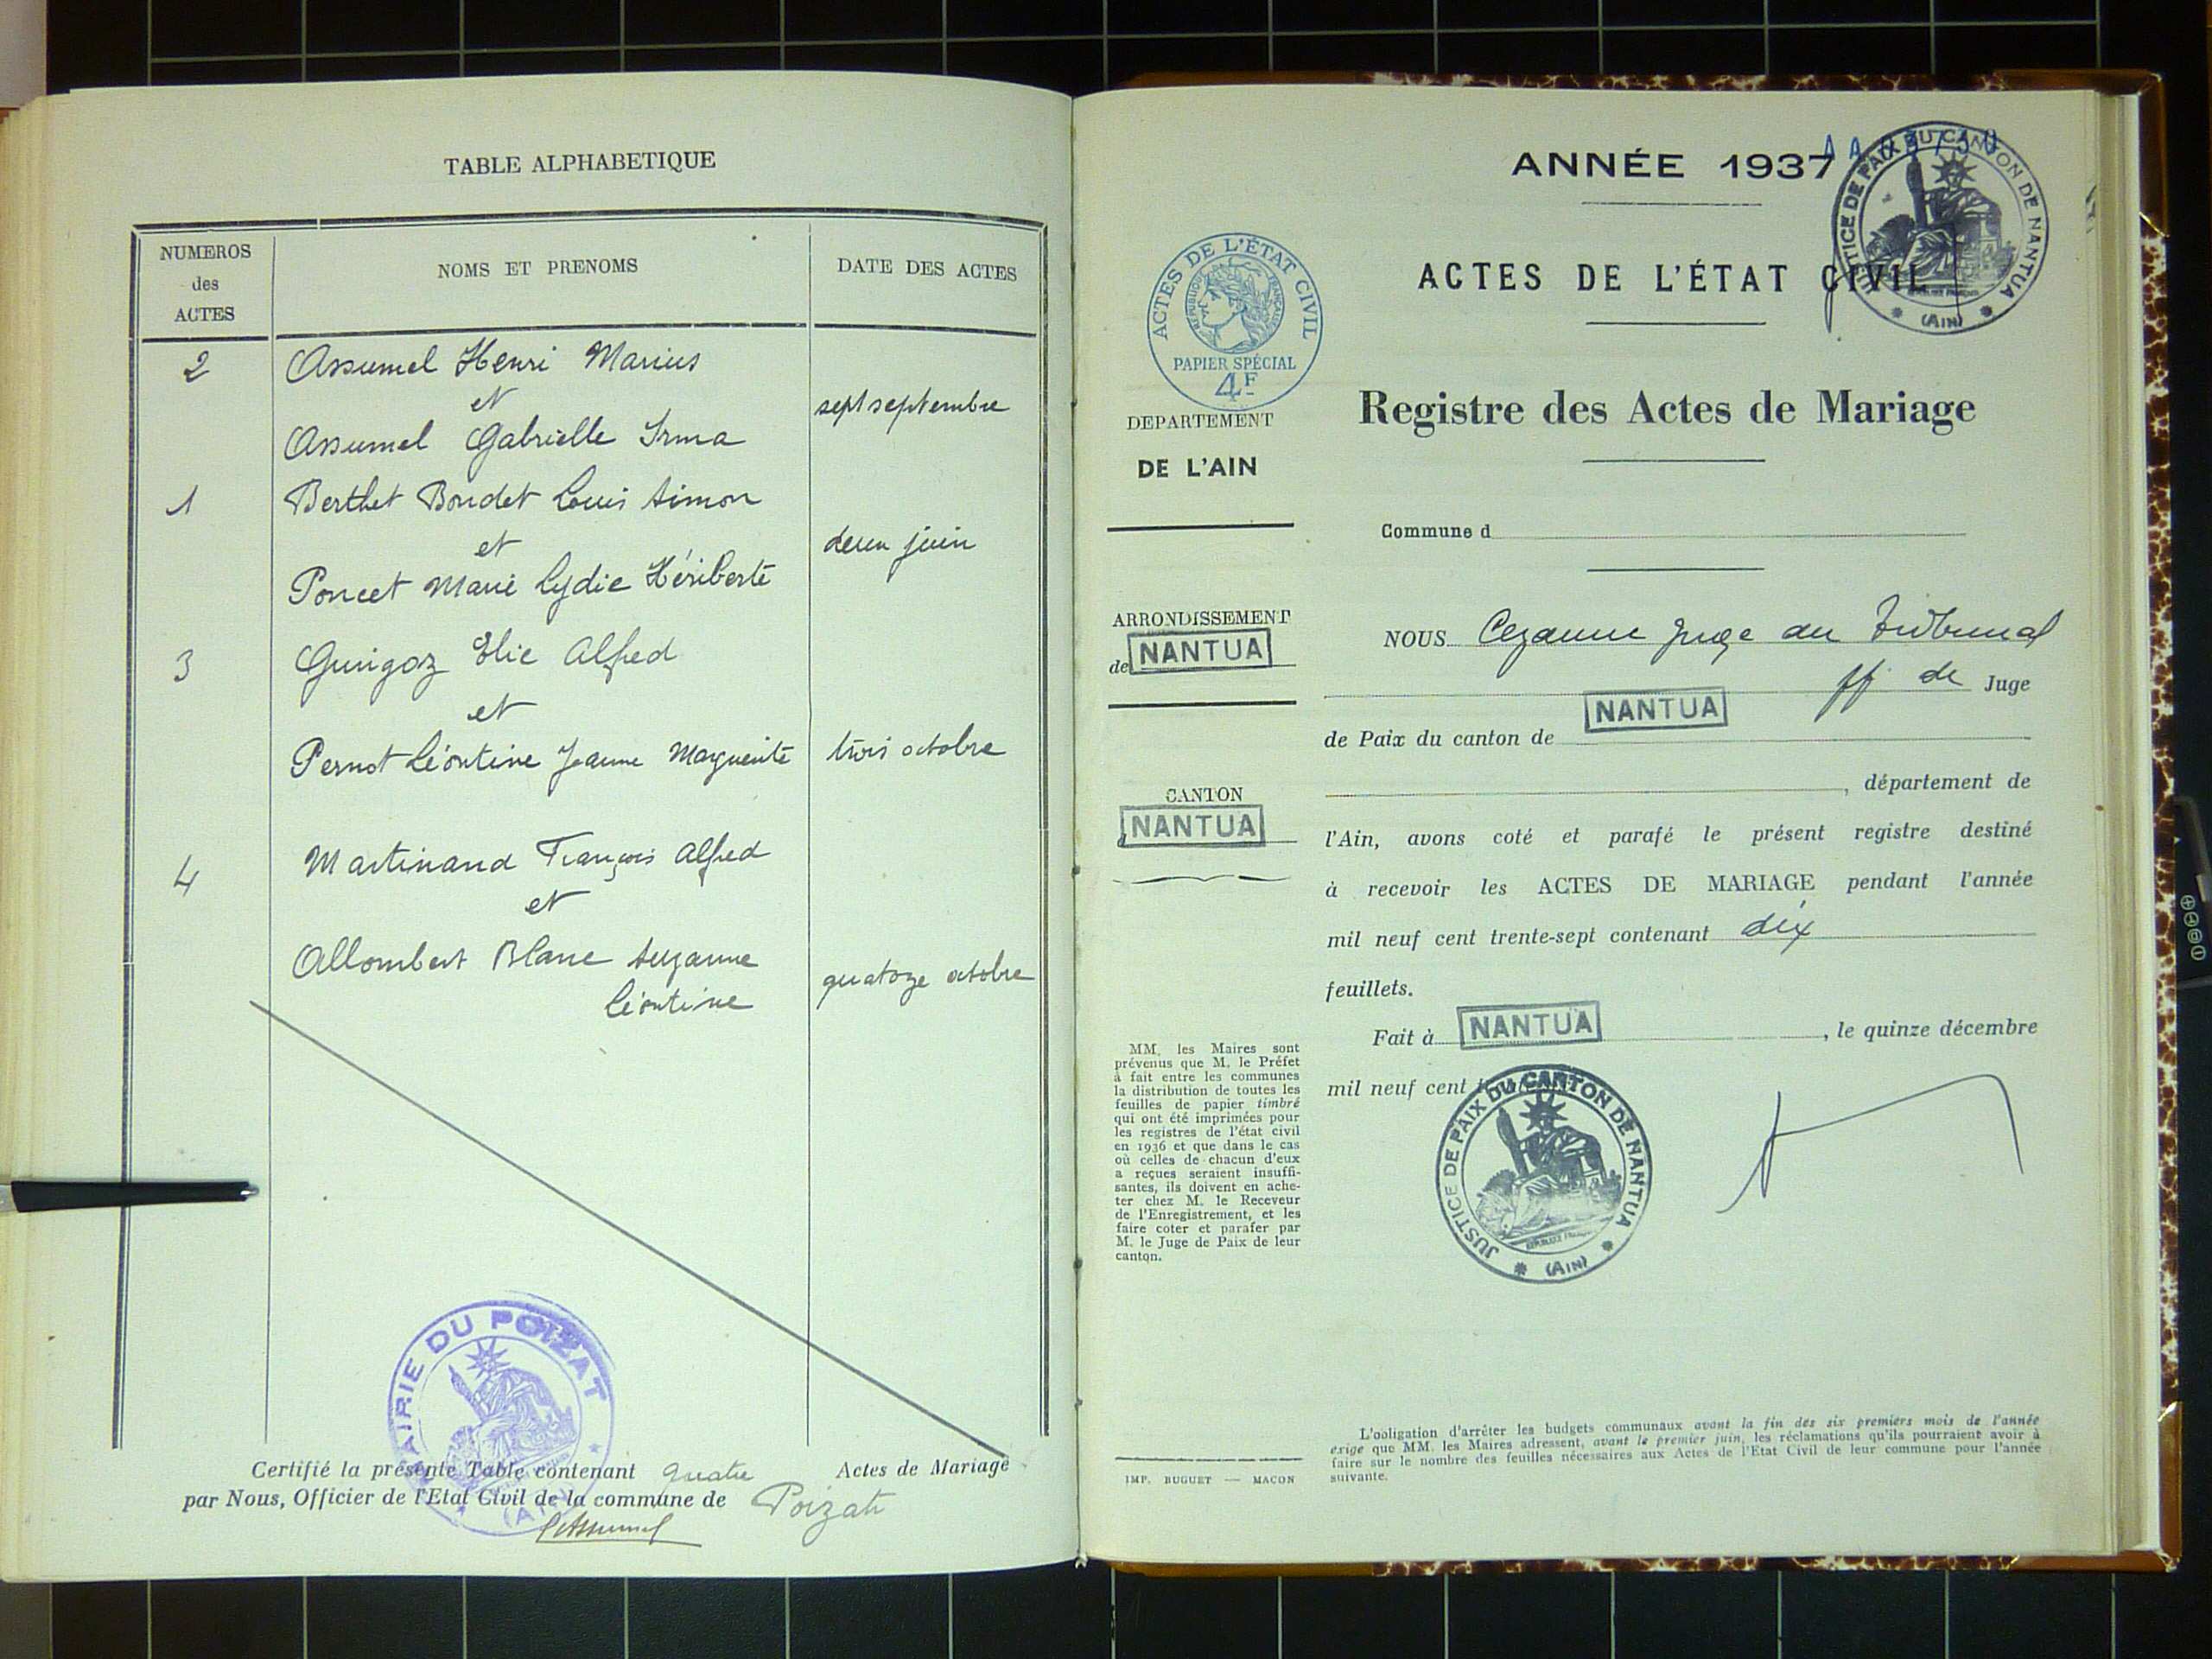 TABLE ALPHABETIQUE
NUMEROS
des
ACTES
NOMS ET PRENOMS
DATE DES ACTES
2
Assumel Henri Marius
et
sept septembre
Assumel Gabrielle Irma
1
Berthet Bondet Louis Simon
et
deux juin
Poncet Marie Lydie Hériberte
3
Guigoz Elie Alfred
et
Pernot Léontine Jeanne Marguerite
trois octobre
4
Martinand François Alfred
et
Allombert Blanc Suzanne
quatoze octobre
Léontine
MAIRIE DU POIZAT
(AIN)
Certifié la présente Table contenant quatre Actes de Mariage
par Nous, Officier de l'Etat Civil de la commune de Poizat
Assumel
ANNÉE 1937
JUSTICE DE PAIX DU CANTON DE NANTUA
(AIN)
ACTES DE L'ÉTAT CIVIL
ACTES DE L'ÉTAT CIVIL
RÉPUBLIQUE FRANÇAISE
PAPIER SPÉCIAL
4F
Registre des Actes de Mariage
DEPARTEMENT
DE L'AIN
Commune d
ARRONDISSEMENT
de NANTUA
CANTON
d NANTUA
NOUS Cezanne Juge au Tribunal
ff de Juge
de Paix du canton de NANTUA
, département de
l'Ain, avons coté et parafé le présent registre destiné
à recevoir les ACTES DE MARIAGE pendant l'année
mil neuf cent trente-sept contenant dix
feuillets.
Fait à NANTUA, le quinze décembre
mil neuf cent
JUSTICE DE PAIX DU CANTON DE NANTUA
(AIN)
MM. les Maires sont
prévenus que M. le Préfet
à fait entre les communes
la distribution de toutes les
feuilles de papier timbré
qui ont été imprimées pour
les registres de l'état civil
en 1936 et que dans le cas
où celles de chacun d'eux
a reçues seraient insuffi-
santes, ils doivent en ache-
ter chez M. le Receveur
de l'Enregistrement, et les
faire coter et parafer par
M. le Juge de Paix de leur
canton.
IMP. BUGUET — MACON
L'obligation d'arrêter les budgets communaux avant la fin des six premiers mois de l'année
exige que MM. les Maires adressent, avant le premier juin, les réclamations qu'ils pourraient avoir à
faire sur le nombre des feuilles nécessaires aux Actes de l'Etat Civil de leur commune pour l'année
suivante.